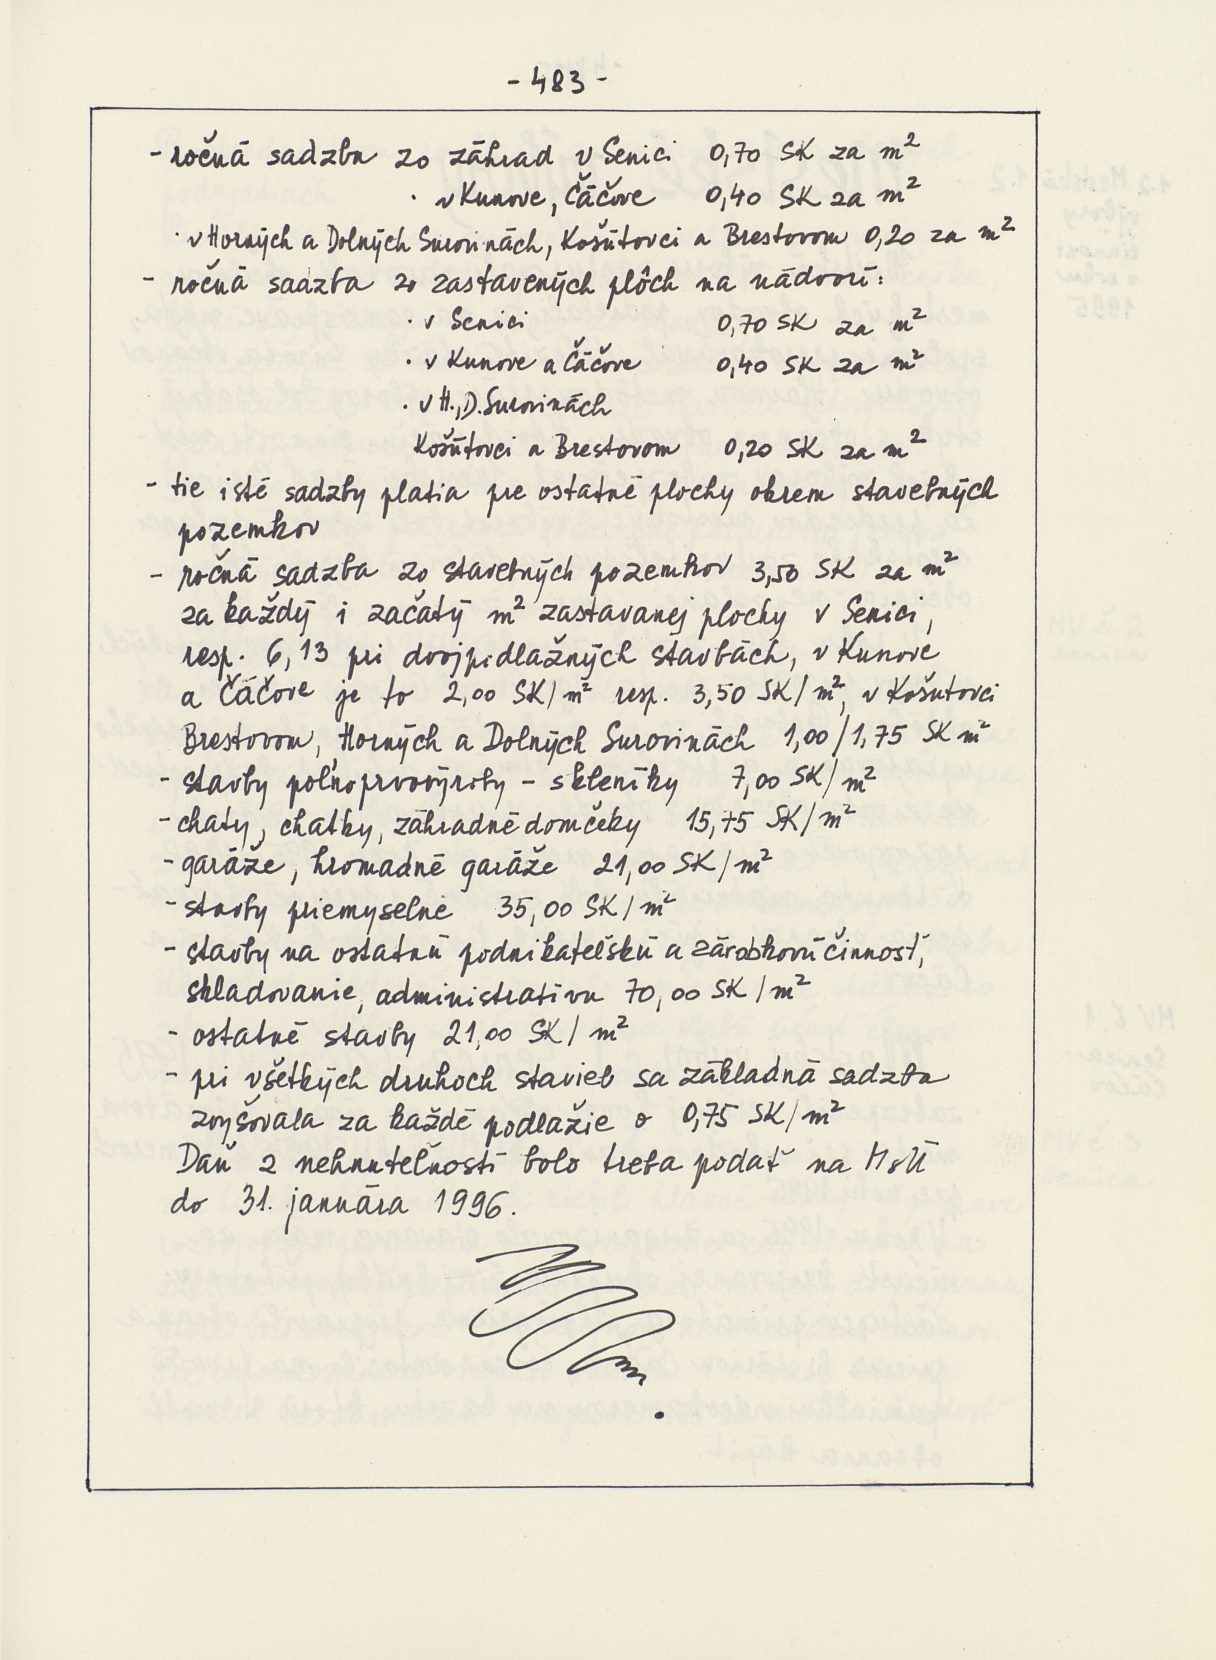 - 483 -
- ročná sadzba zo záhrad v Senici 0,70 SK za m²
· v Kunove, Čáčove 0,40 SK za m²
· v Horných a Dolných Surovinách, Košútovci a Brestovom 0,20 za m²
- ročná sadzba zo zastavených plôch na nádvorí:
· v Senici 0,70 SK za m²
· v Kunove a Čáčove 0,40 SK za m²
· v H., D. Surovinách
Košútovci a Brestovom 0,20 SK za m²
- tie isté sadzby platia pre ostatné plochy okrem stavebných
pozemkov
- ročná sadzba zo stavebných pozemkov 3,50 SK za m²
za každý i začatý m² zastavanej plochy v Senici,
resp. 6,13 pri dvojpodlažných stavbách, v Kunove
a Čáčove je to 2,00 SK/m² resp. 3,50 SK/m², v Košutovci
Brestovom, Horných a Dolných Surovinách 1,00/1,75 SK m²
- stavby poľnoprvovýroby - skleníky 7,00 SK/m²
- chaty, chatky, záhradné domčeky 15,75 SK/m²
- garáže, hromadné garáže 21,00 SK/m²
- stavby priemyselné 35,00 SK/m²
- stavby na ostatnú podnikateľskú a zárobkovú činnosť,
skladovanie, administratívu 70,00 SK/m²
- ostatné stavby 21,00 SK/m²
- pri všetkých druhoch stavieb sa základná sadzba
zvyšovala za každé podlažie o 0,75 SK/m²
Daň z nehnuteľností bolo treba podať na MsÚ
do 31. januára 1996.